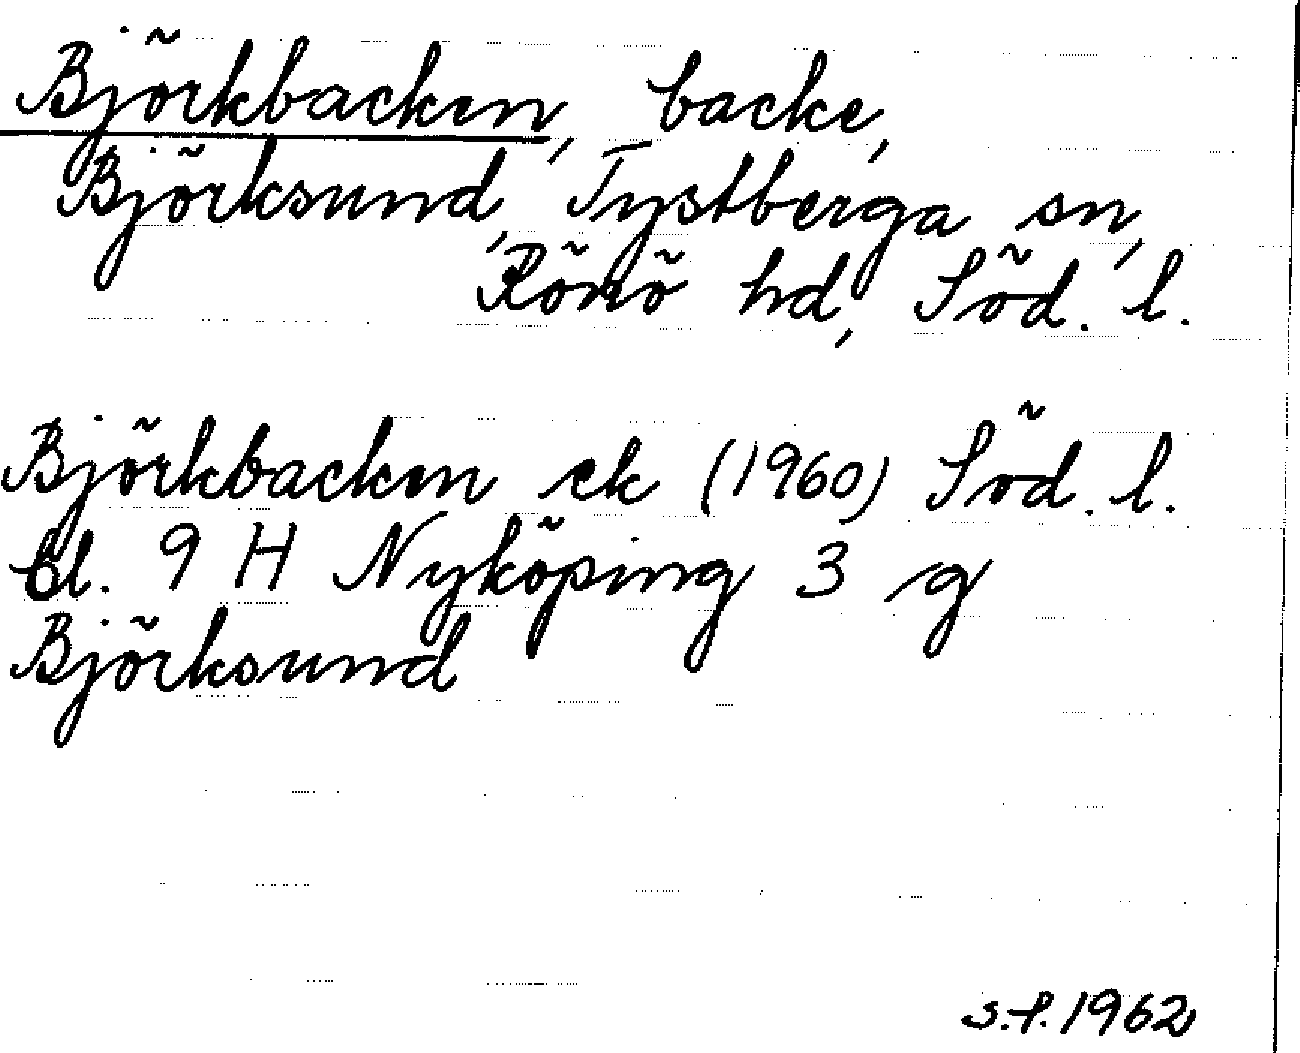 Björkbacken, backe,
Björksund, Tystberga sn,
Rönö hd, Söd. l.
Björkbacken ek (1960) Söd. l.
bl. 9 H Nyköping 3 g
Björksund
s.f. 1962